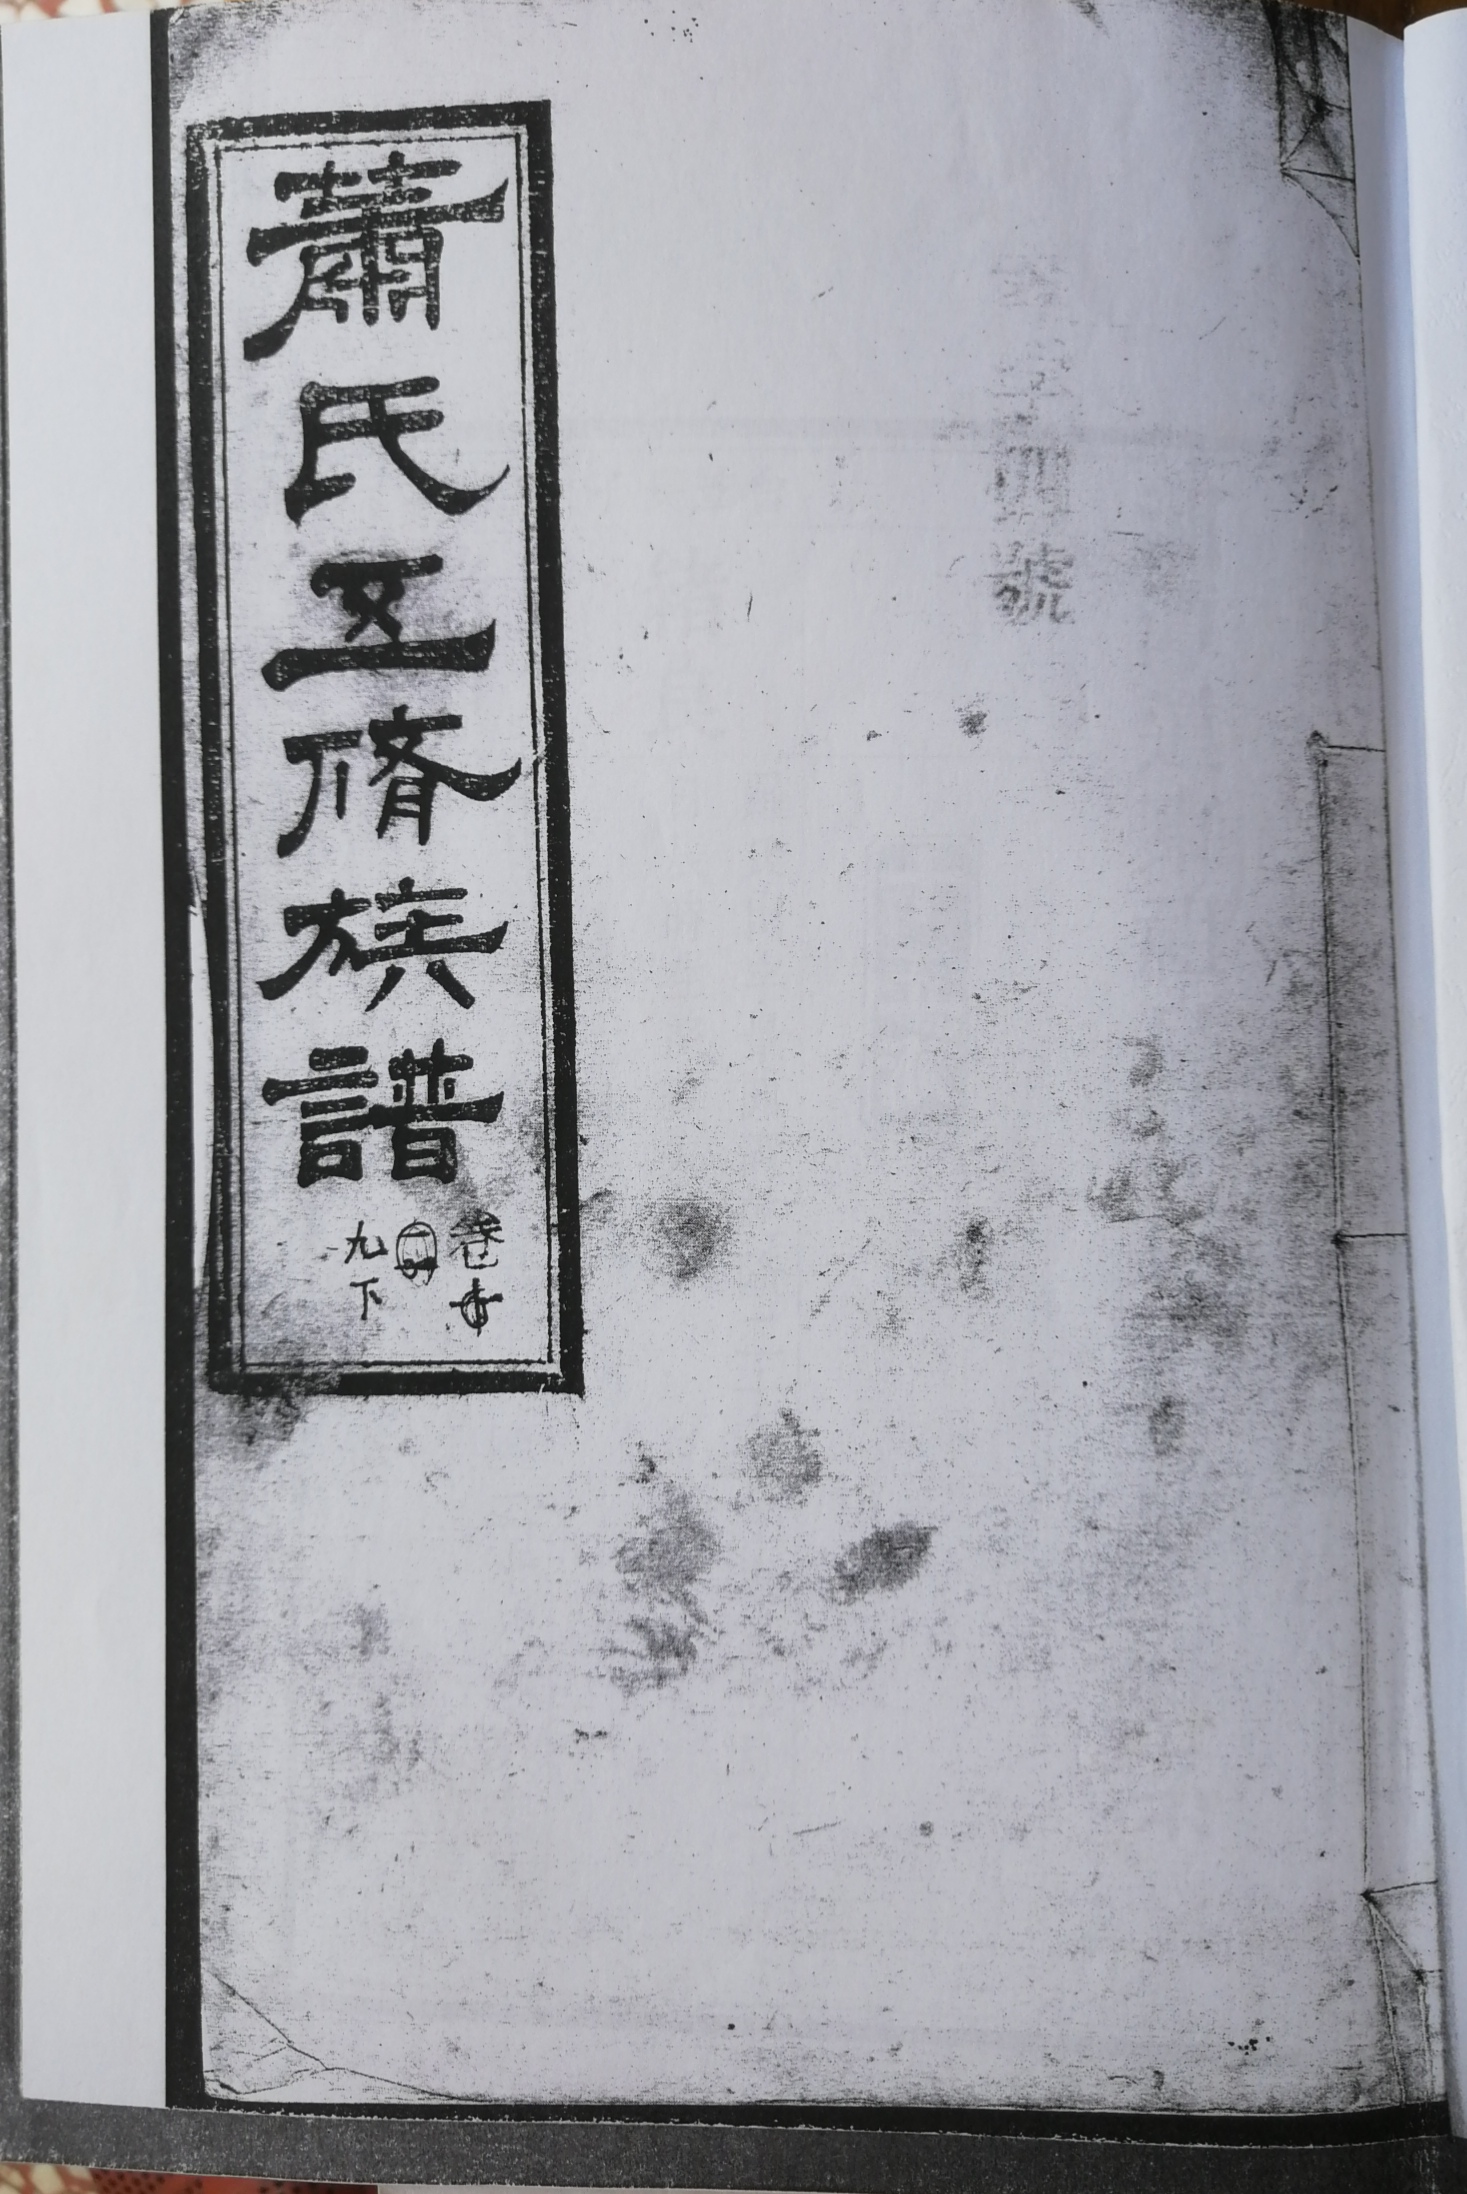 號
蕭氏五脩族譜
卷
九下